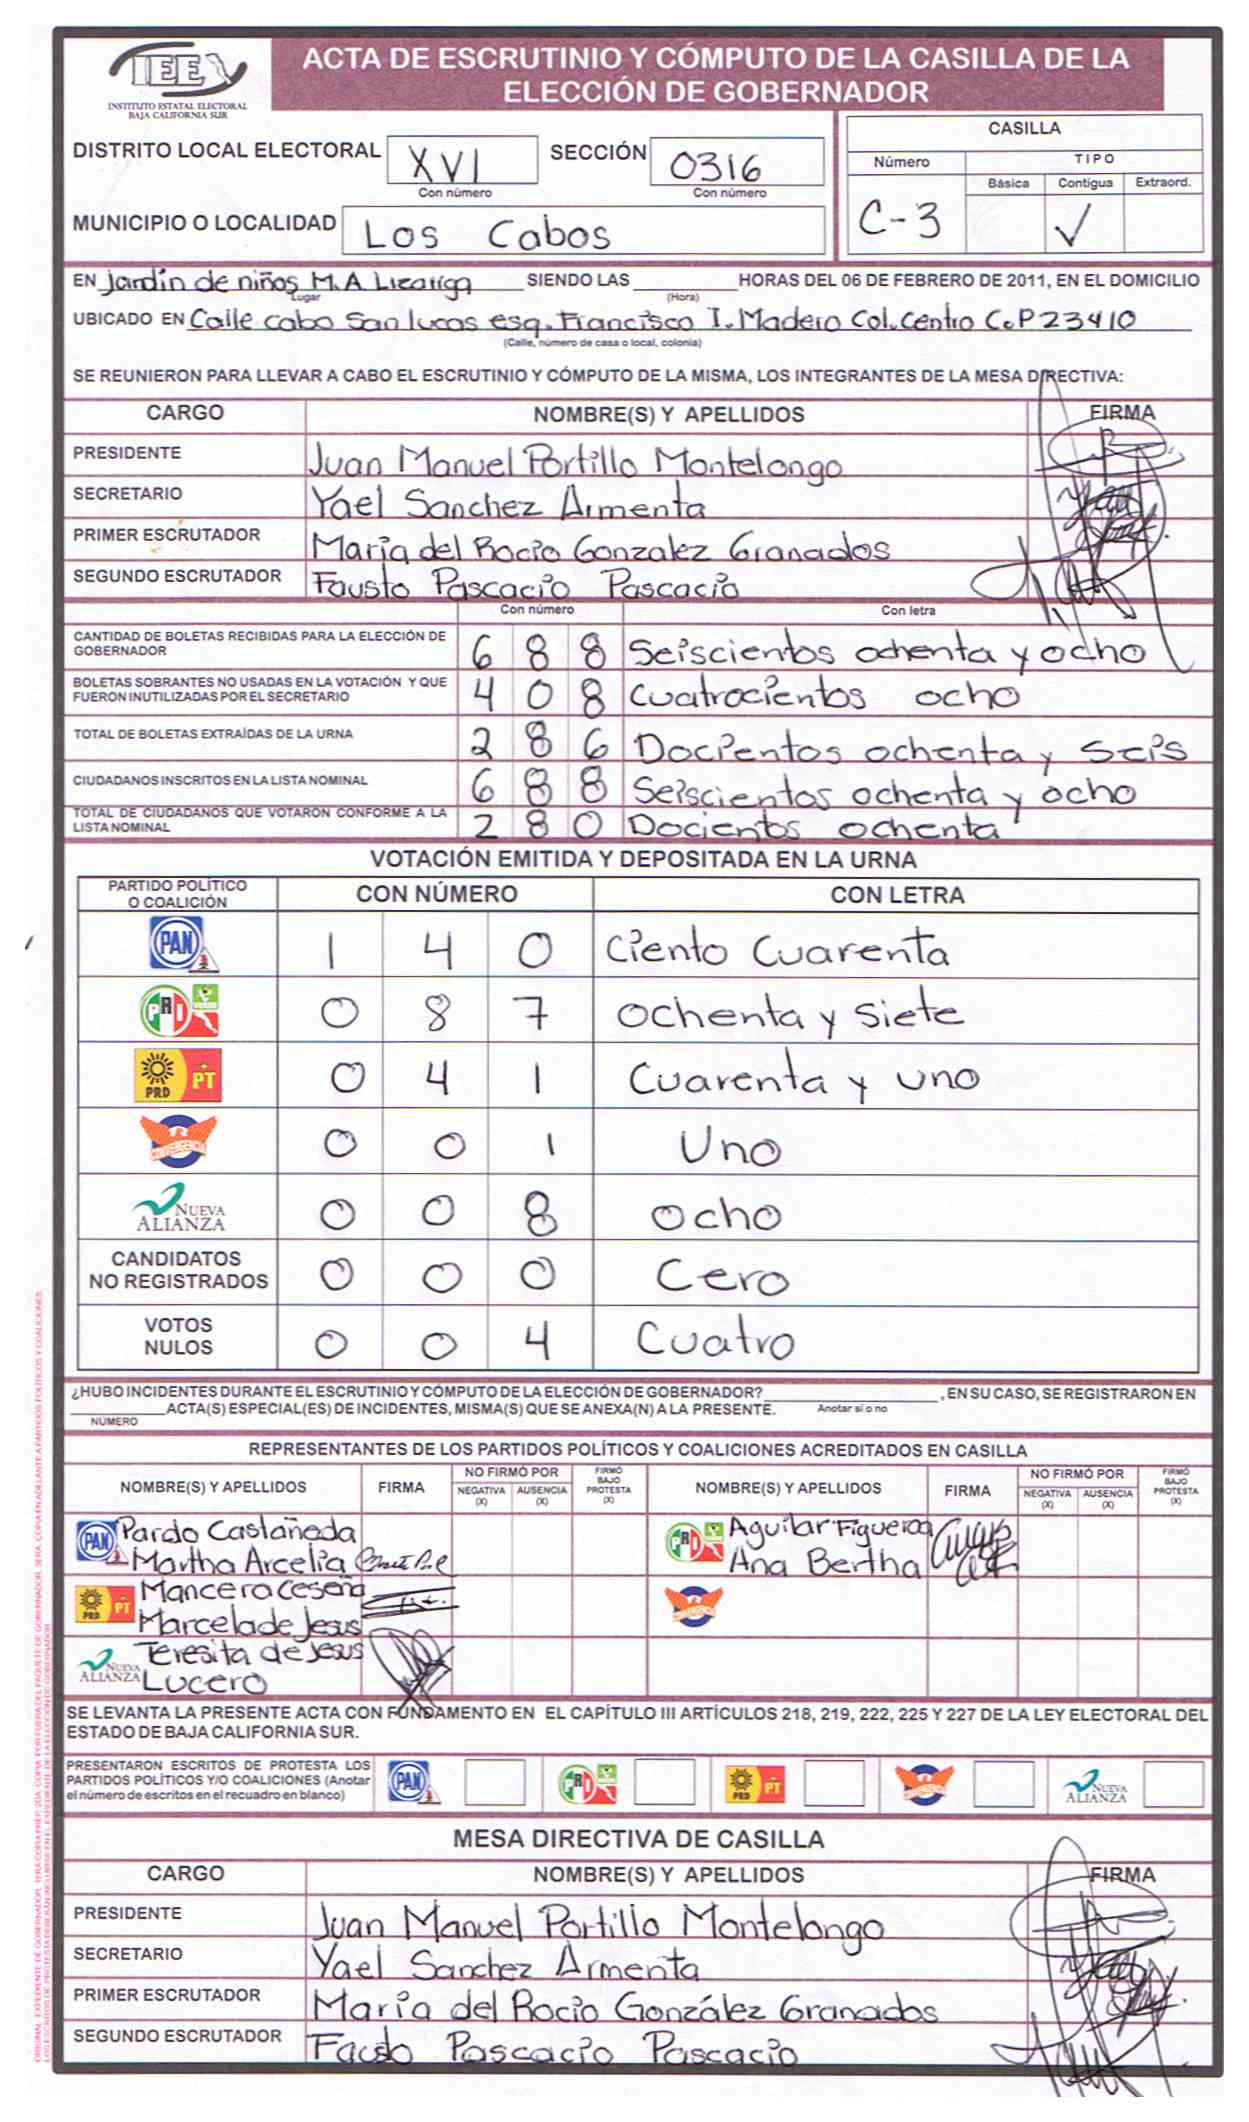 IEE
INSTITUTO ESTATAL ELECTORAL
BAJA CALIFORNIA SUR
ACTA DE ESCRUTINIO Y CÓMPUTO DE LA CASILLA DE LA
ELECCIÓN DE GOBERNADOR
DISTRITO LOCAL ELECTORAL XVI SECCIÓN 0316
Con número Con número
MUNICIPIO O LOCALIDAD Los Cabos
CASILLA
Número TIPO
Básica Contigua Extraord.
C-3 ✓
EN Jardín de niños M.A. SIENDO LAS HORAS DEL 06 DE FEBRERO DE 2011, EN EL DOMICILIO
Lugar (Hora)
UBICADO EN Calle cabo San lucas esq. Francisco I. Madero Col. Centro C.P 23410
(Calle, número de casa o local, colonia)
SE REUNIERON PARA LLEVAR A CABO EL ESCRUTINIO Y CÓMPUTO DE LA MISMA, LOS INTEGRANTES DE LA MESA DIRECTIVA:
CARGO NOMBRE(S) Y APELLIDOS FIRMA
PRESIDENTE Juan Manuel Portillo Montelongo
SECRETARIO Yael Sanchez Armenta
PRIMER ESCRUTADOR María del Rocio Gonzalez Granados
SEGUNDO ESCRUTADOR Fausto Pascacio Pascacio
Con número Con letra
CANTIDAD DE BOLETAS RECIBIDAS PARA LA ELECCIÓN DE
GOBERNADOR 6 8 8 Seiscientos ochenta y ocho
BOLETAS SOBRANTES NO USADAS EN LA VOTACIÓN Y QUE
FUERON INUTILIZADAS POR EL SECRETARIO 4 0 8 cuatrocientos ocho
TOTAL DE BOLETAS EXTRAÍDAS DE LA URNA 2 8 6 Docientos ochenta y seis
CIUDADANOS INSCRITOS EN LA LISTA NOMINAL 6 8 8 Seiscientos ochenta y ocho
TOTAL DE CIUDADANOS QUE VOTARON CONFORME A LA
LISTA NOMINAL 2 8 0 Docientos ochenta
VOTACIÓN EMITIDA Y DEPOSITADA EN LA URNA
PARTIDO POLÍTICO
O COALICIÓN CON NÚMERO CON LETRA
PAN 1 4 0 Ciento Cuarenta
PRI VERDE 0 8 7 Ochenta y siete
PRD PT 0 4 1 Cuarenta y uno
CONVERGENCIA 0 0 1 Uno
NUEVA ALIANZA 0 0 8 ocho
CANDIDATOS
NO REGISTRADOS 0 0 0 Cero
VOTOS
NULOS 0 0 4 Cuatro
¿HUBO INCIDENTES DURANTE EL ESCRUTINIO Y CÓMPUTO DE LA ELECCIÓN DE GOBERNADOR? , EN SU CASO, SE REGISTRARON EN
ACTA(S) ESPECIAL(ES) DE INCIDENTES, MISMA(S) QUE SE ANEXA(N) A LA PRESENTE. Anotar sí o no
NÚMERO
REPRESENTANTES DE LOS PARTIDOS POLÍTICOS Y COALICIONES ACREDITADOS EN CASILLA
NOMBRE(S) Y APELLIDOS FIRMA NO FIRMÓ POR NEGATIVA (X) AUSENCIA (X) FIRMÓ BAJO PROTESTA (X) NOMBRE(S) Y APELLIDOS FIRMA NO FIRMÓ POR NEGATIVA (X) AUSENCIA (X) FIRMÓ BAJO PROTESTA (X)
PAN Pardo Castañeda PRI VERDE Aguilar Figueroa
Martha Arcelia Ana Bertha
PRD PT Mancera Ceseña CONVERGENCIA
Marcela de Jesus
NUEVA ALIANZA Teresita de Jesus
Lucero
SE LEVANTA LA PRESENTE ACTA CON FUNDAMENTO EN EL CAPÍTULO III ARTÍCULOS 218, 219, 222, 225 Y 227 DE LA LEY ELECTORAL DEL
ESTADO DE BAJA CALIFORNIA SUR.
PRESENTARON ESCRITOS DE PROTESTA LOS
PARTIDOS POLÍTICOS Y/O COALICIONES (Anotar
el número de escritos en el recuadro en blanco) PAN PRI PRD PT CONVERGENCIA NUEVA ALIANZA
MESA DIRECTIVA DE CASILLA
CARGO NOMBRE(S) Y APELLIDOS FIRMA
PRESIDENTE Juan Manuel Portillo Montelongo
SECRETARIO Yael Sanchez Armenta
PRIMER ESCRUTADOR María del Rocio González Granados
SEGUNDO ESCRUTADOR Fausto Pascacio Pascacio